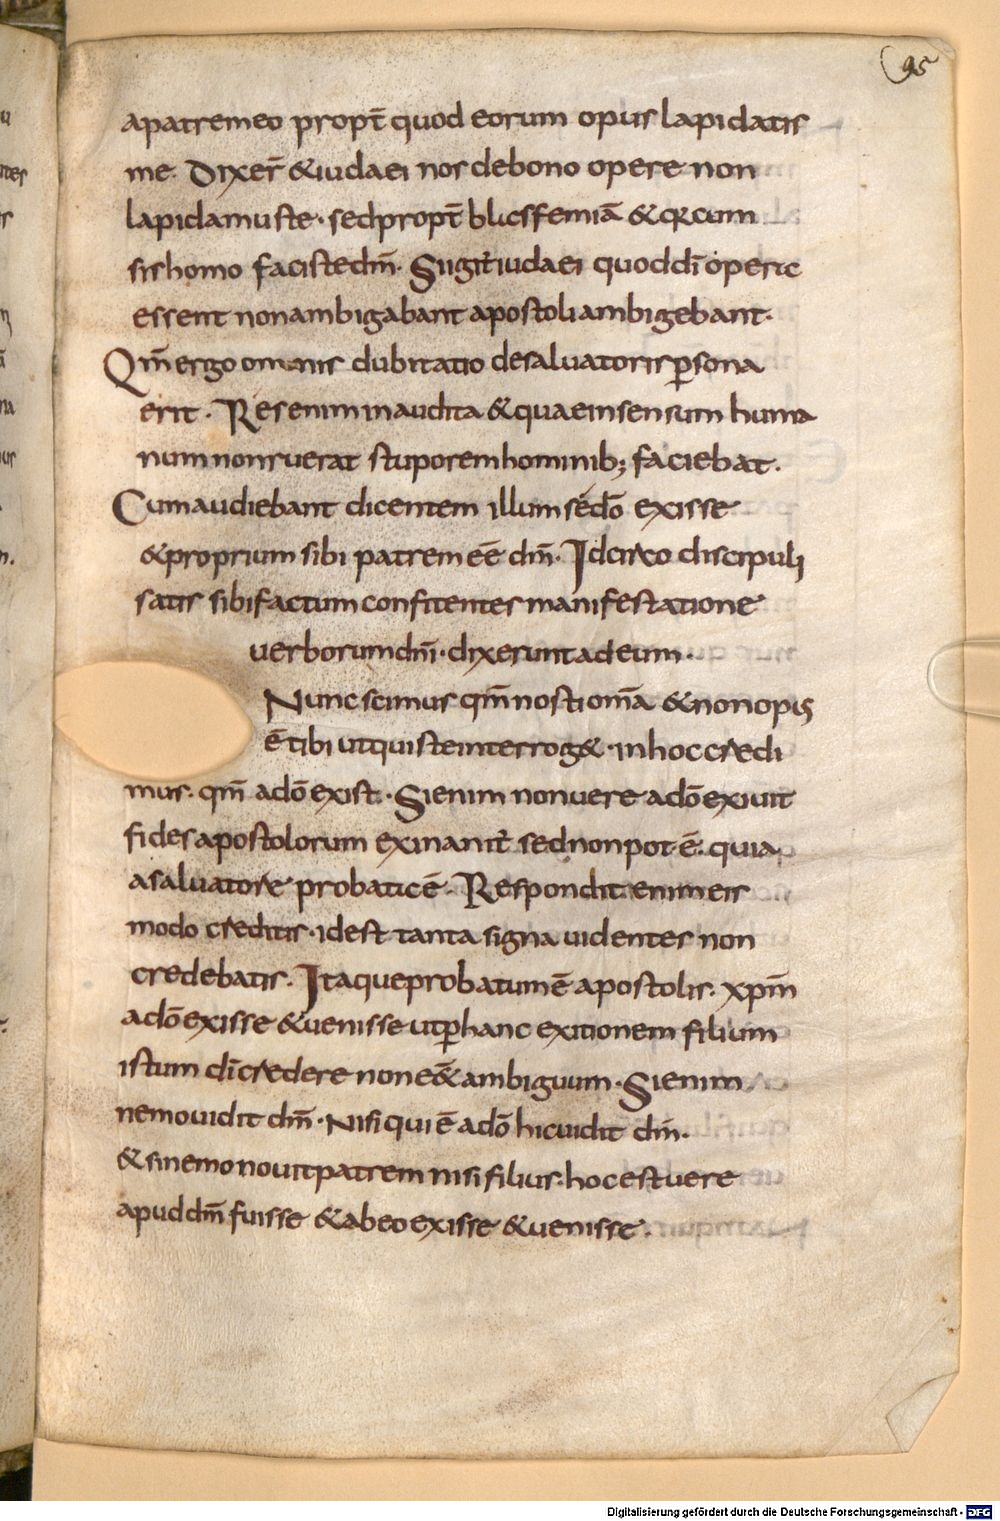 95
apatremeo propt̄ quod eorum opus lapidatis
me. Dixer̄ &iudaei nos debono opere non
lapidamuste · sedpropt̄ blasfemiā &qr cum
sishomo facistedm̄. Siigit̄ iudaei quoddī operis
essent nonambigabant apostoli ambigebant·
Qm̄ ergo omnis dubitatio desaluatoris p̄sona
erit · Res enim inaudita &quaeinsensum huma
num nonruerat stuporem hominib; faciebat ·
Cum audiebant dicentem illum sedō exisse
&proprium sibi patrem eē dm̄ · Idcirco discipuli
satis sibi factum confitentes manifestatione
uerborum dn̄i · dixerunt adeum ·
Nunc scimus qm̄ nosti om̄a &non opus
ē tibi utquisteinterrog& · inhoc credi
mus · qm̄ adō exist̄ · Sienim nonuere adō exiuit
fides apostolorum exinanit̄ sednonpotē · quia
asaluatore probatice · Respondit enim eis
modo creditis · idest tanta signa uidentes non
credebatis · Itaque probatum ē apostolis · xpm̄
adō exisse &uenisse utp̄hanc exitionem filium
istum dī credere none& ambiguum · Sienim
nemo uidit dm̄ · Nisi qui ē adō hic uidit dm̄ ·
&sinemo nouit patrem nisi filius · hocest uere
apud dm̄ fuisse &abeo exisse &uenisse ·
Digitalisierung gefördert durch die Deutsche Forschungsgemeinschaft - DFG